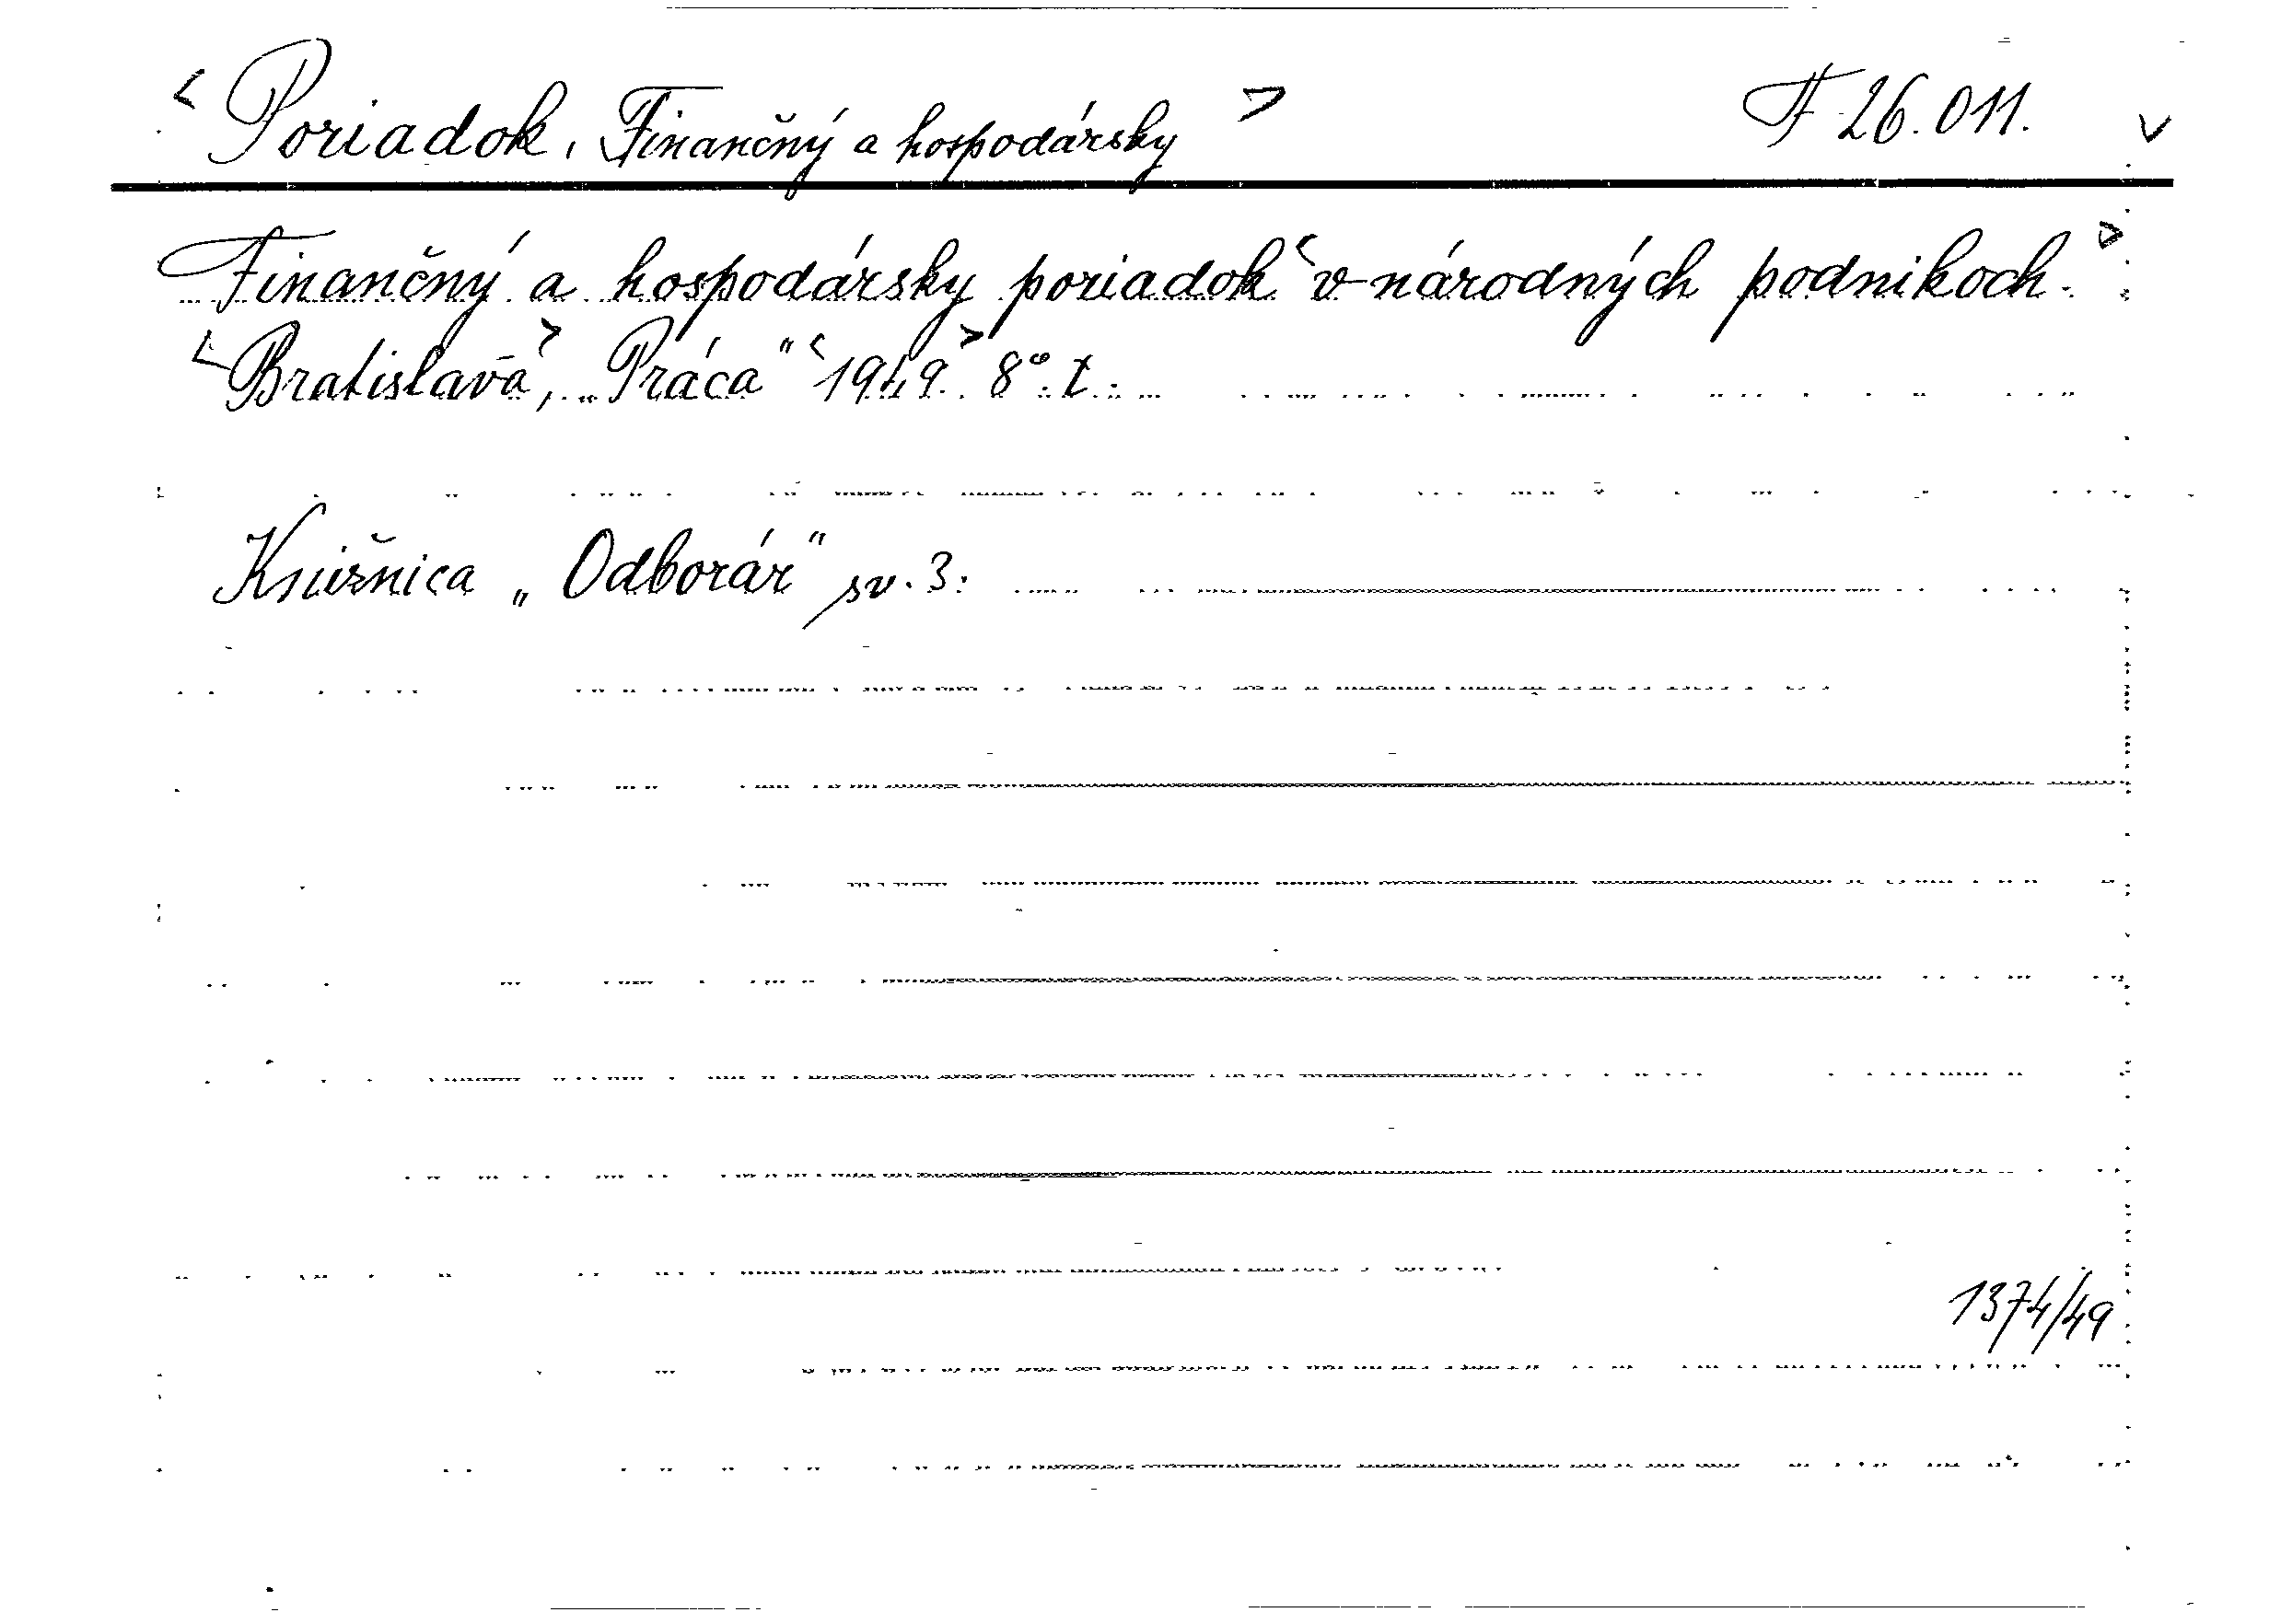 < Poriadok, Finančný a hospodársky > F 26.011. v
Finančný a hospodársky poriadok < v národných podnikoch. >
< Bratislava >, „Práca" < 1949. > 8°. t.
Knižnica „Odborár" sv. 3.
1374/49